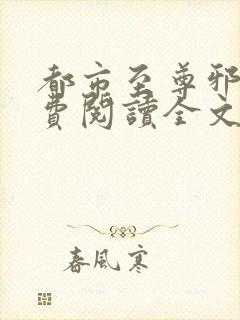 都市至尊邪
費閱讀全文
春風寒